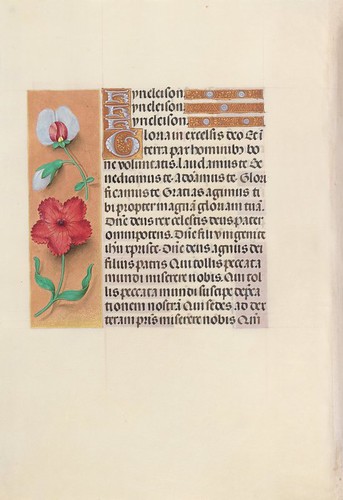 Kyrieleison.
Kyrieleison.
Kyrieleison.
Gloria in excelsis deo Et i
terra pax hominibꝰ bo
ne voluntatis. Laudamus te Be
nedicimus te adoramus te. Glori
ficamus te. Gratias agimus ti
bi propter magnā gloriam tuā.
Dn̄e deus rex celestis deus pater
omnipotens. Dn̄e fili vnigenite
ihu xp̄riste. Dn̄e deus agnus dei
filius patris Qui tollis peccata
mundi miserere nobis. Qui tol
lis peccata mundi suscipe dep̄ca
tionem nostrā Qui sedes ad dex
teram pr̄is miserere nobis Qm̄